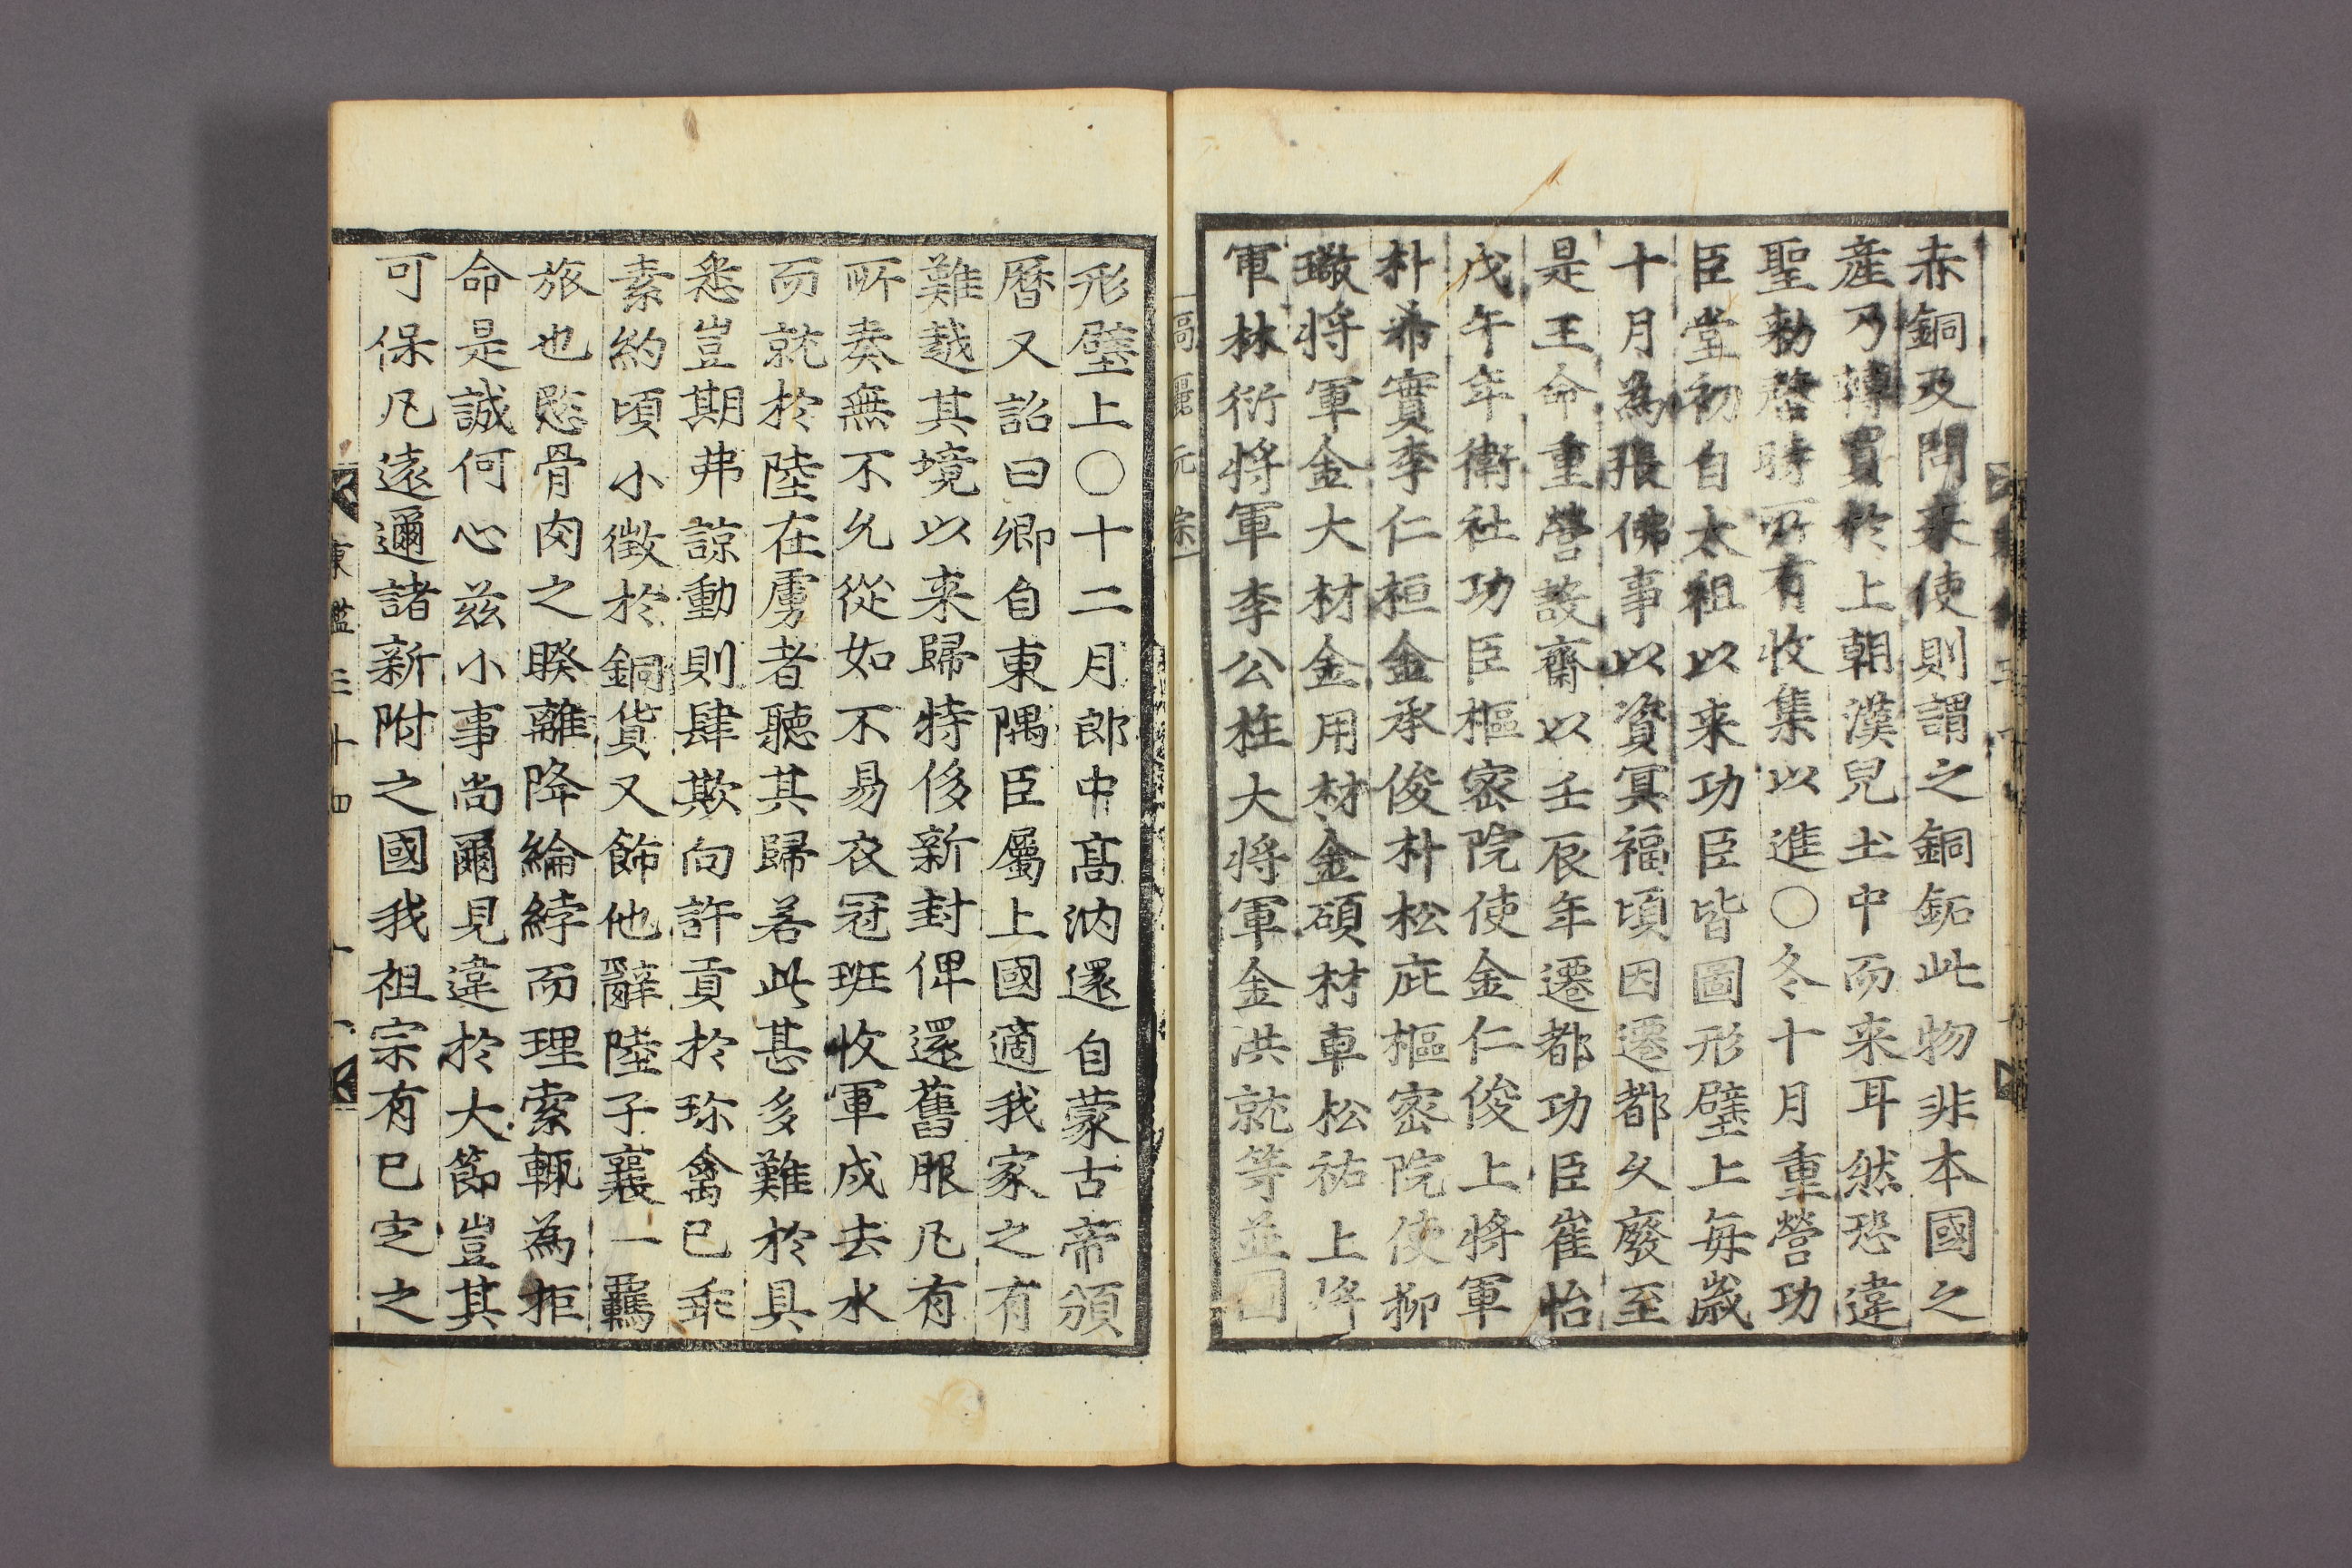 赤銅及問来使則謂之銅鉐此物非本國之
産乃轉買於上朝漢兒土中而来耳然恐違
聖勑啓時所有收集以進○冬十月重營功
臣堂初自太祖以来功臣皆圖形壁上毎歳
十月為張佛事以資冥福頃因遷都久廢至
是王命重營設齋以壬辰年遷都功臣崔怡
戊午年衛社功臣樞密院使金仁俊上將軍
朴希實李仁桓金承俊朴松庇樞密院使柳
璥將軍金大材金用材金碩材車松祐上將
軍林衍將軍李公柱大將軍金洪就等並圖
高麗元宗
形壁上○十二月郎中高汭還自蒙古帝頒
曆又詔曰卿自東隅臣屬上國適我家之有
難越其境以来歸特侈新封俾還舊服凡有
所奏無不允從如不易衣冠班收軍戍去水
而就於陸在虜者聽其歸若此甚多難於具
悉豈期弗諒動則肆欺向許貢於珎禽已乖
素約頃小徴於銅貨又飾他辭陸子襄一羈
旅也愍骨肉之睽離降綸綍而理索輒為拒
命是誠何心玆小事尚爾見違於大節豈其
可保凡遠邇諸新附之國我祖宗有已㝎之
東鑑三十四